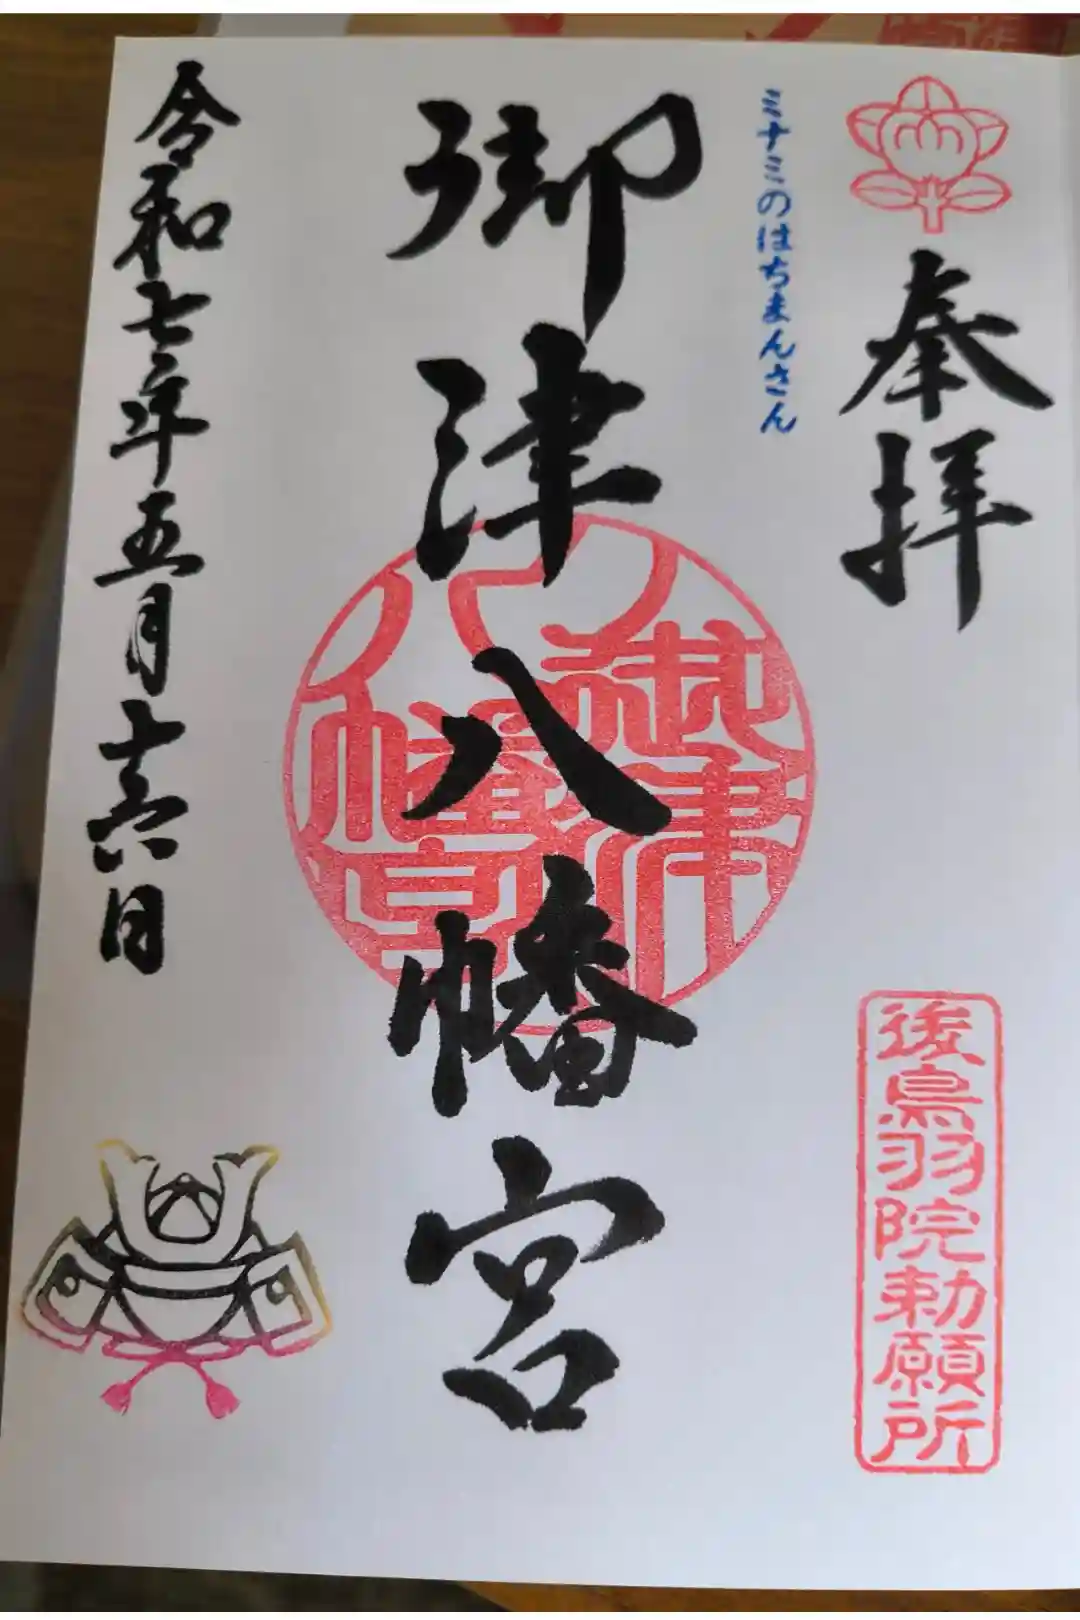 奉拝
後鳥羽院勅願所
ミナミのはちまんさん
御津八幡宮
御津
八幡宮
令和七年五月十六日